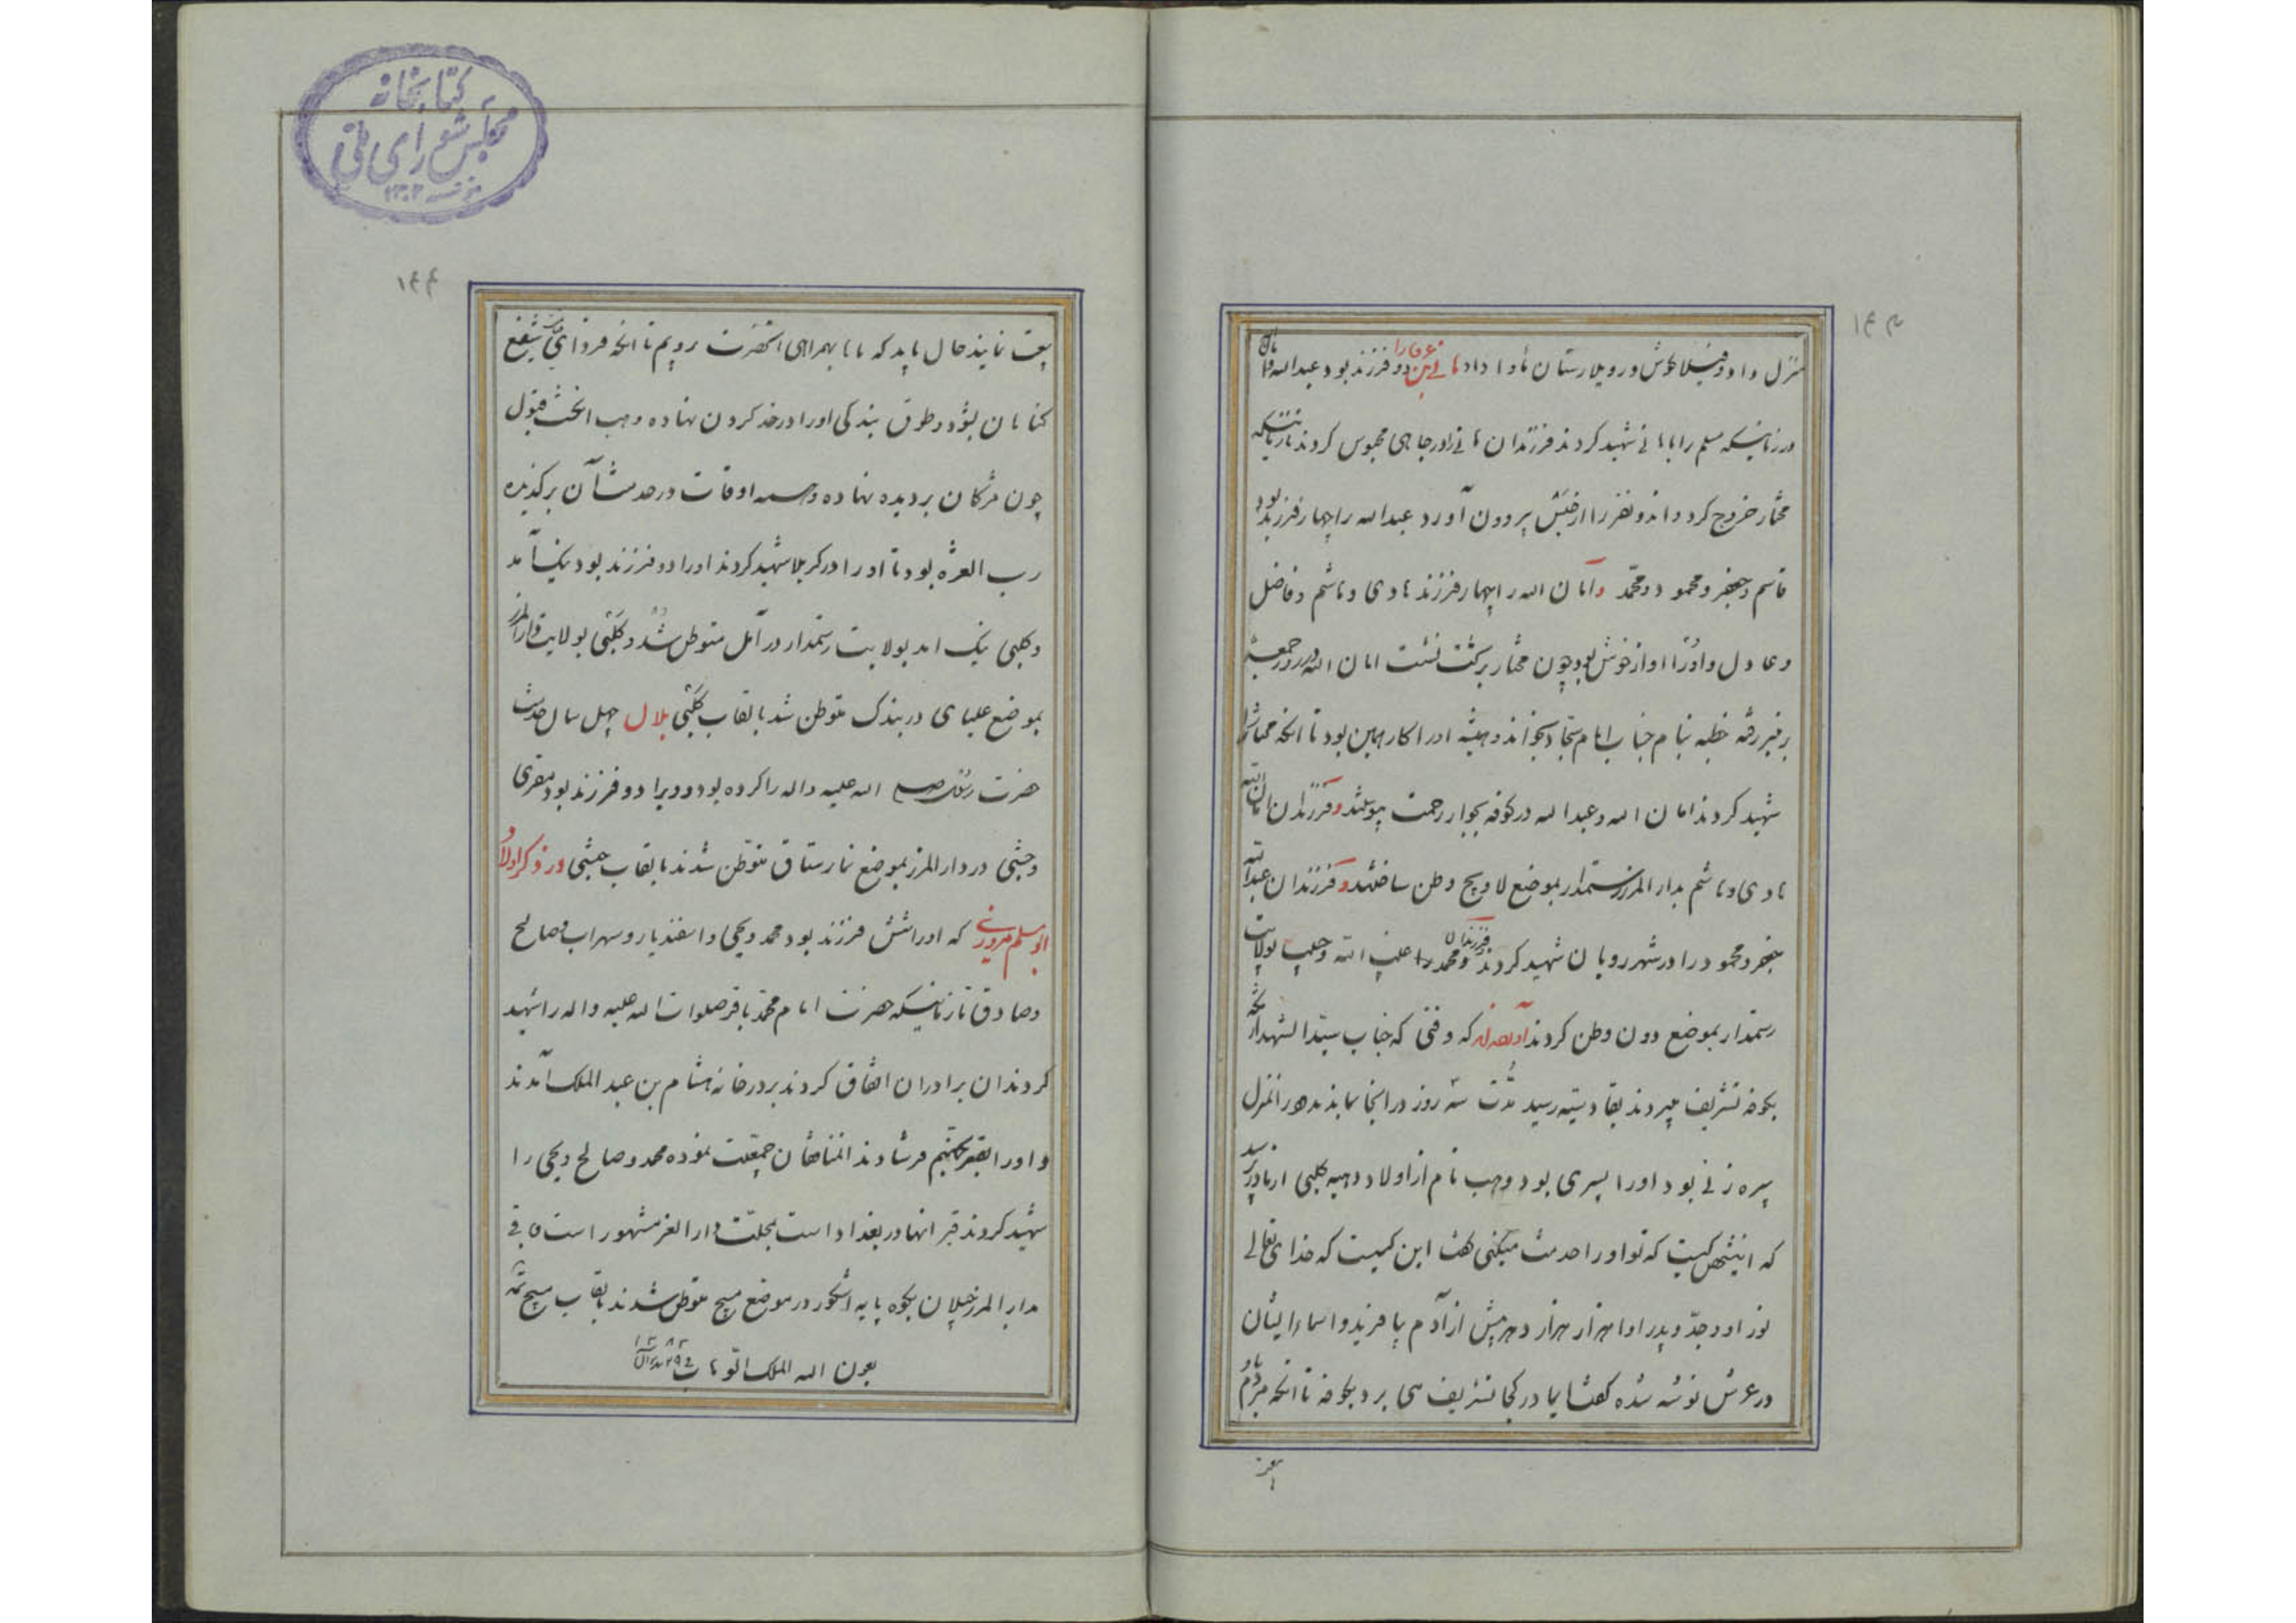 ۱۴۳
منزل داد و قیلاکوش و رویلارستان ماوا داد هانی بن عروه را دو فرزند بود عبدالله و امان
در زمانیکه مسلم را با هانی شهید کردند فرزندان هانی را در چاهی محبوس کردند تا زمانیکه
مختار خروج کرد و اندو نفر را از حبس بیرون آورد عبدالله را چهار فرزند بود
قاسم و جعفر و محمود و محمد و امان الله را چهار فرزند هادی و هاشم و فاضل
و عادل و او را اواز خوش بود چون مختار بر تخت نشست امان الله در روز جمعه
بر منبر رفته خطبه بنام جناب امام سجاد بخواند و همیشه او را کار همین بود تا انکه مختار را
شهید کردند امان الله و عبدالله در کوفه بجوار رحمت پیوستند و فرزندان امان الله
هادی و هاشم بدار المرز رستمدار بموضع لاویج وطن ساختند و فرزندان عبدالله
جعفر و محمود را در شهر رویان شهید کردند و فرزندان محمد را بولایت
رستمدار بموضع دون وطن کردند که وقتی که جناب سید الشهدا
بکوفه تشریف میبردند بقادسیه رسید مدت سه روز در انجا بماندند در انمنزل
پیره زنی بود او را پسری بود وهب نام از اولاد وهبه کلبی از مادر پرسید
که اینشخص کیست که تو او را خدمت میکنی گفت این کسیست که خدای تعالی
نور او و جد و پدر او را هزار هزار دهر پیش از آدم بیافرید و اسماء ایشان
در عرش نوشته شده گفت ایمادر کجا تشریف می برد بکوفه تا انکه مردم باو
بیعت
۱۴۴
بیعت نمایند حال باید که ما با بهمراهی انحضرت رویم تا انکه فردای شفیع
گناهان بود و طوق بندگی او را در خود گردن نهاده وهب انگشت قبول
چون مژگان بر دیده نهاده و همه اوقات در خدمت آن برگزیده
رب العزه بود تا او را در کربلا شهید کردند او را دو فرزند بود نیک آمد
و کلبی نیک امد بولایت رستمدار در آمل متوطن شد و کلبی بولایت دارالمرز
بموضع علیای دربندک متوطن شد بالقاب کلبی بلال چهل سال خدمت
حضرت رسول صلی الله علیه و اله را کرده بود و ویرا دو فرزند بود مقری
و حبشی در دار المرز بموضع نمارستاق متوطن شدند بالقاب حبشی در ذکر اولاد
ابو مسلم مروزی که او را شش فرزند بود محمد و یحیی و اسفندیار و سهراب و صالح
و صادق تا زمانیکه حضرت امام محمد باقر صلوات الله علیه و اله را شهید
کردند ان برادران اتفاق کردند بر در خانه هشام بن عبد الملک آمدند
و او را بقعر جهنم فرستادند المنافقان جمعیت نموده محمد و صالح و یحیی را
شهید کردند قبر انها در بغداد است بمحلت دار العز مشهور است باقی
بدار المرز گیلان بکوه پایه اشکور در موضع میج متوطن شدند بالقاب میج تمه
بعون الله الملک التواب
۱۳۸۲
کتابخانه
مجلس شورای ملی